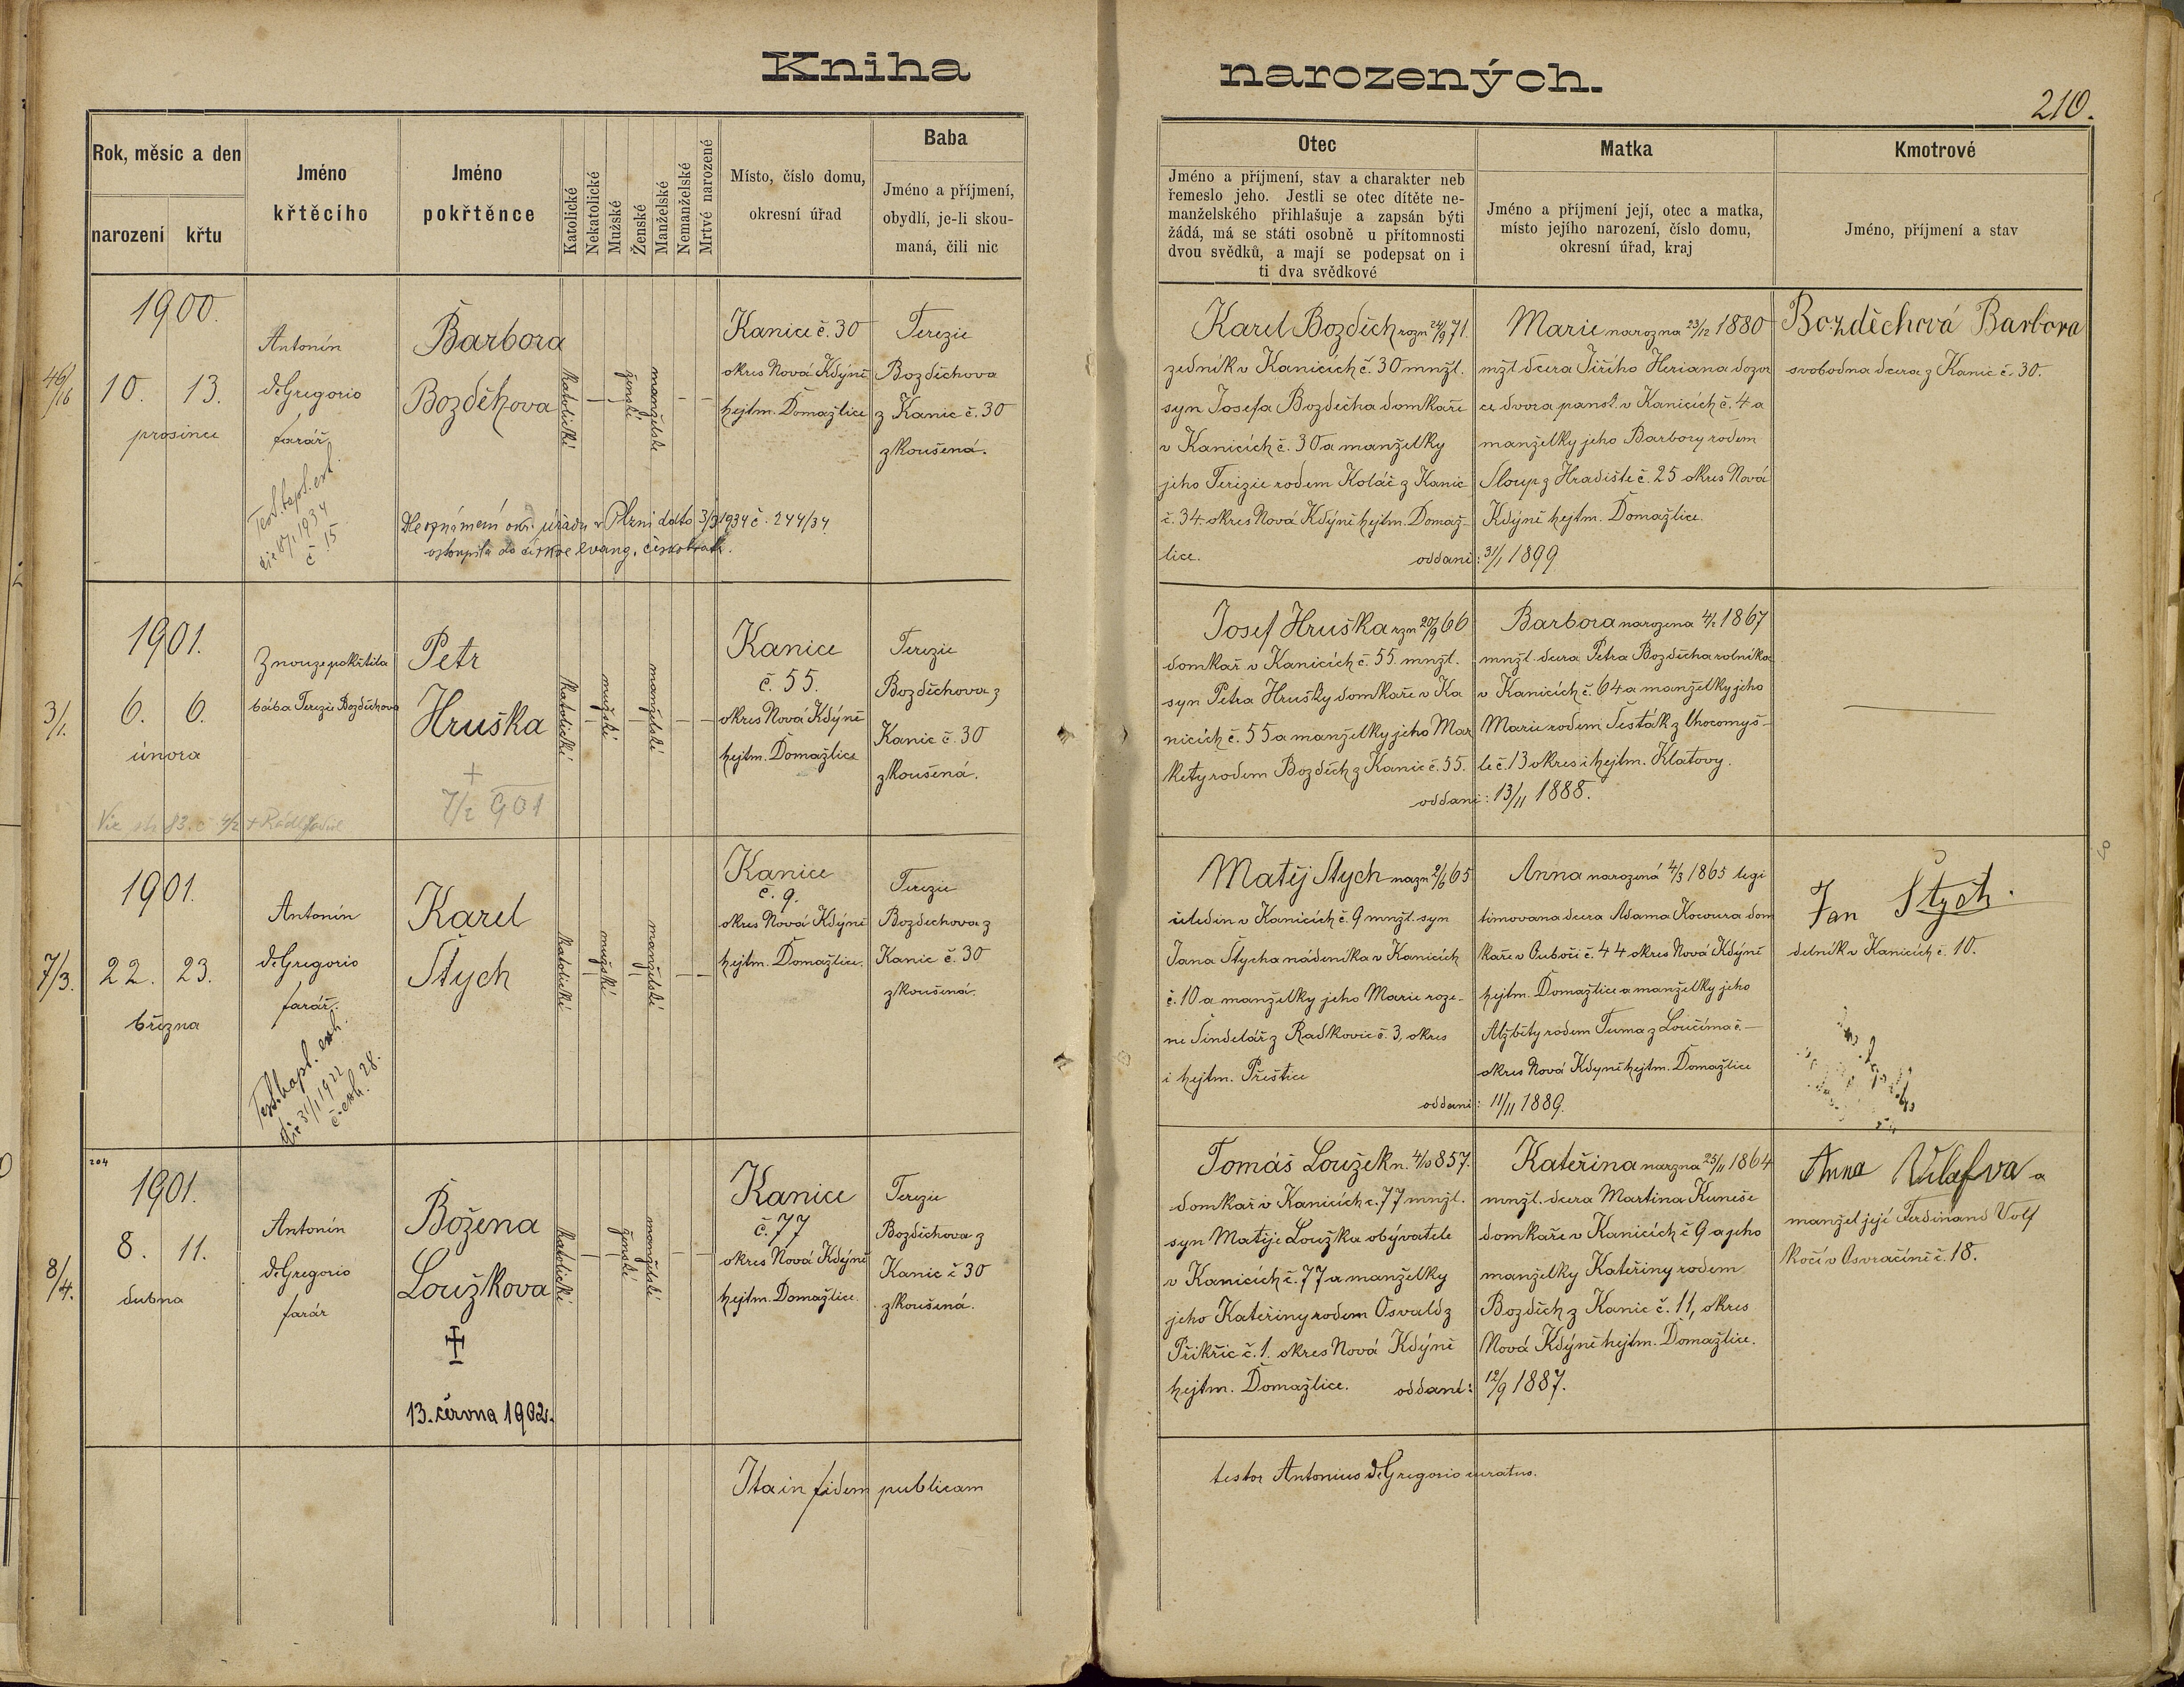 Kniha narozených.
210.
Rok, měsíc a den
narození
křtu
Jméno
křtěcího
Jméno
pokřtěnce
Katolické
Nekatolické
Mužské
Ženské
Manželské
Nemanželské
Mrtvé narozené
Místo, číslo domu,
okresní úřad
Baba
Jméno a příjmení,
obydlí, je-li skou-
maná, čili nic
Otec
Jméno a příjmení, stav a charakter neb
řemeslo jeho. Jestli se otec dítěte ne-
manželského přihlašuje a zapsán býti
žádá, má se státi osobně u přítomnosti
dvou svědků, a mají se podepsat on i
ti dva svědkové
Matka
Jméno a příjmení její, otec a matka,
místo jejího narození, číslo domu,
okresní úřad, kraj
Kmotrové
Jméno, příjmení a stav
46/16
1900.
10. 13.
prosince
Antonín
deGregorio
farář
Test. bapt. ext.
č. 15
Barbora
Bozděchova
Dle oznámení okr. úřadu v Plzni dato 3/3 1934 č. 244/34
vstoupila do církve evang. českobratr.
katolické
–
ženské
manželské
– –
Kanice č. 30
okres Nová Kdýně
hejtm. Domažlice
Terezie
Bozděchova
z Kanic č. 30
zkoušená.
Karel Bozděch rozn 24/9 71.
zedník v Kanicích č. 30 mnžl.
syn Josefa Bozděcha domkaře
v Kanicích č. 30 a manželky
jeho Terezie rodem Koláč z Kanic
č. 34 okres Nová Kdýně hejtm. Domaž-
lice.
oddani: 31/1 1899
Marie narozna 23/12 1880
mžl. dcera Jiřího Heriana dozor
ce dvora pansk. v Kanicích č. 4 a
manželky jeho Barbory rodem
Sloup z Hradiště č. 25 okres Nová
Kdýně hejtm. Domažlice.
Bozděchová Barbora
svobodna dcera z Kanic č. 30.
3/1.
1901.
6. 6.
února
Z nouze pokřtila
bába Terezie Bozděchova
Petr
Hruška
+
7/2 901
katolické
–
mužské
–
manželské
– –
Kanice
č. 55.
okres Nová Kdýně
hejtm. Domažlice
Terezie
Bozděchova z
Kanic č. 30
zkoušená.
Josef Hruška rzn 20/9 66
domkař v Kanicích č. 55. mnžl.
syn Petra Hrušky domkaře v Ka
nicích č. 55 a manželky jeho Mar
kety rodem Bozděch z Kanic č. 55.
oddani: 13/11 1888.
Barbora narozena 4/2 1867
mnžl. dcera Petra Bozděcha rolníka
v Kanicích č. 64 a manželky jeho
Marie rodem Šesták z Chocomyš-
le č. 13 okres i hejtm. Klatovy.
7/3.
1901.
22. 23.
března
Antonín
deGregorio
farář.
Test. bapt. exh.
die 31/1 1922
č. exh. 28.
Karel
Štych
katolické
–
mužské
–
manželské
– –
Kanice
č. 9.
okres Nová Kdýně
hejtm. Domažlice.
Terezie
Bozdechova z
Kanic č. 30
zkoušená.
Matěj Štych nazn 2/6 65
čeledín v Kanicích č. 9 mnžl. syn
Jana Štycha nádeníka v Kanicích
č. 10 a manželky jeho Marie roze-
né Šindelář z Radkovic č. 3, okres
i hejtm. Přeštice
oddani: 11/11 1889.
Anna narozená 4/3 1865 legi
timovana dcera Adama Kocoura dom
kaře v Ouboči č. 44 okres Nová Kdýně
hejtm. Domažlice a manželky jeho
Alžběty rodem Tuma z Loučima č. –
okres Nová Kdyně hejtm. Domažlice
Jan Štych.
delník v Kanicích č. 10.
8/4.
204
1901.
8. 11.
dubna
Antonín
deGregorio
farár
Božena
Loužkova
13. června 1902.
katolické
–
ženské
manželské
– –
Kanice
č. 77
okres Nová Kdýně
hejtm. Domažlice.
Terezie
Bozděchova z
Kanic č 30
zkoušená.
Tomáš Loužek n. 4/10 857.
domkař v Kanicích č. 77 mnžl.
syn Matěje Loužka obývatele
v Kanicích č. 77 a manželky
jeho Kateřiny rodem Osvald z
Přikřic č. 1. okres Nová Kdýně
hejtm. Domažlice. oddani: 12/9 1887.
Kateřina narzna 25/11 1864
mnžl. dcera Martina Kuneše
domkaře v Kanicích č 9 a jeho
manželky Kateřiny rodem
Bozděch z Kanic č. 11, okres
Nová Kdýně hejtm. Domažlice.
Anna a
manžel její Ferdinand Volf
kočí v Osvračíně č. 18.
Ita in fidem publicam
testor Antonius deGregorio curatus.